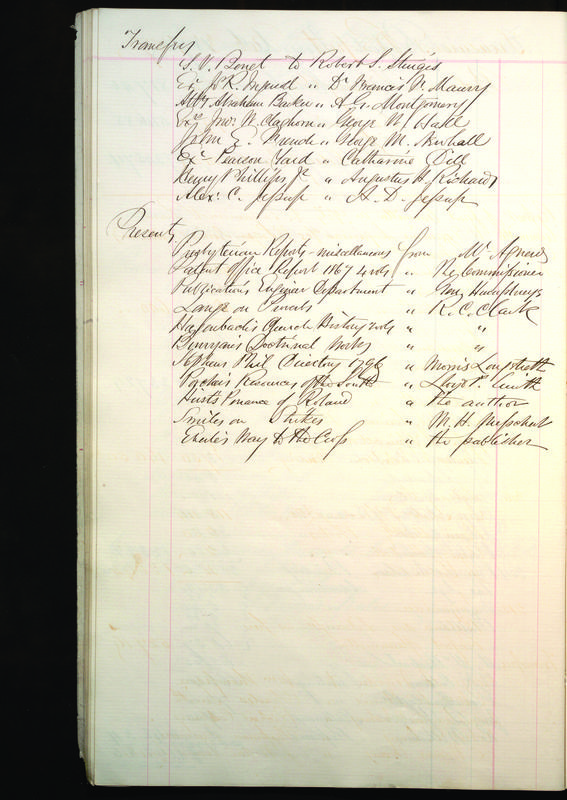 Transfers
S. V. Benet to Robert S. Sturgis
Exr J. R. " Dr Francis F. Maury
Atty Abraham Barker " A. G. Montgomery
Exrs Jno. W. Claghorn " George W. Hall
John E. French " George M. Newhall
Exr Pearson " Catharine Dill
Henry Phillips Jr " Augustus H. Richards
Alexr. C. Jessup " A. D. Jessup
Presents
Presbyterian Reports - miscellaneous from Mr Agnew
Patent Office Report 1867 4 vols " The Commissioner
Publications Engineer Department " Gen Humphreys
Lange on Proverbs " R. C. Clark
Hagenbach's Church History 2 vols " "
Bunyan's Doctrinal Works " "
Stephens Phil Directory 1796 " Morris Longstreth
Porcher's Resources of the South " Lloyd P. Smith
Hirst's Penance of Roland " the author
Smiles on " M. H.
Eberle's Way to the Cross " the publisher